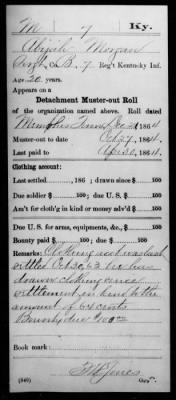 M 7 Ky.
Abijah Morgan
Co. B, 7 Reg't Kentucky Inf.
Age 20 years.
Appears on a
Detachment Muster-out Roll
of the organization named above. Roll dated
Memphis Tenn, 1864.
Muster-out to date Oct 27, 1864.
Last paid to Apr 30, 1864.
Clothing account:
Last settled , 186 ; drawn since $ 100
Due soldier $ 100; due U. S. $ 100
Am't for cloth'g in kind or money adv'd $ 100
Due U. S. for arms, equipments, &c., $ 100
Bounty paid $ 100; due $ 100
Remarks: Clothing acct was last
settled Oct 30, 63 he has
drawn clothing since
settlement in kind to the
amount of 64 cents
Bounty due $100.00
Book mark:
(340) Copyist.